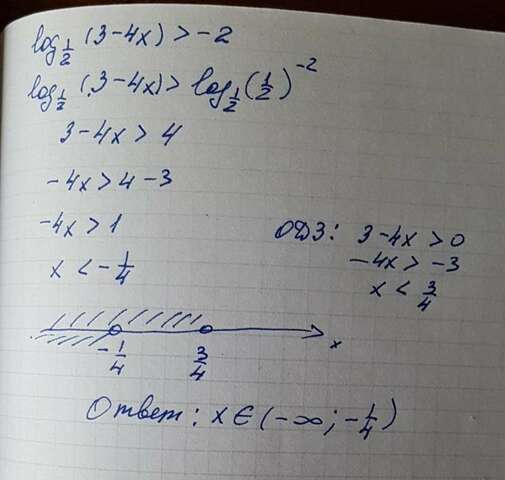 log_{1/2} (3-4x) > -2
log_{1/2} (3-4x) > log_{1/2} (1/2)^{-2}
3-4x > 4
-4x > 4-3
-4x > 1
x < -1/4
ОДЗ: 3-4x > 0
-4x > -3
x < 3/4
-1/4 3/4 x
Ответ: x ∈ (-∞; -1/4)